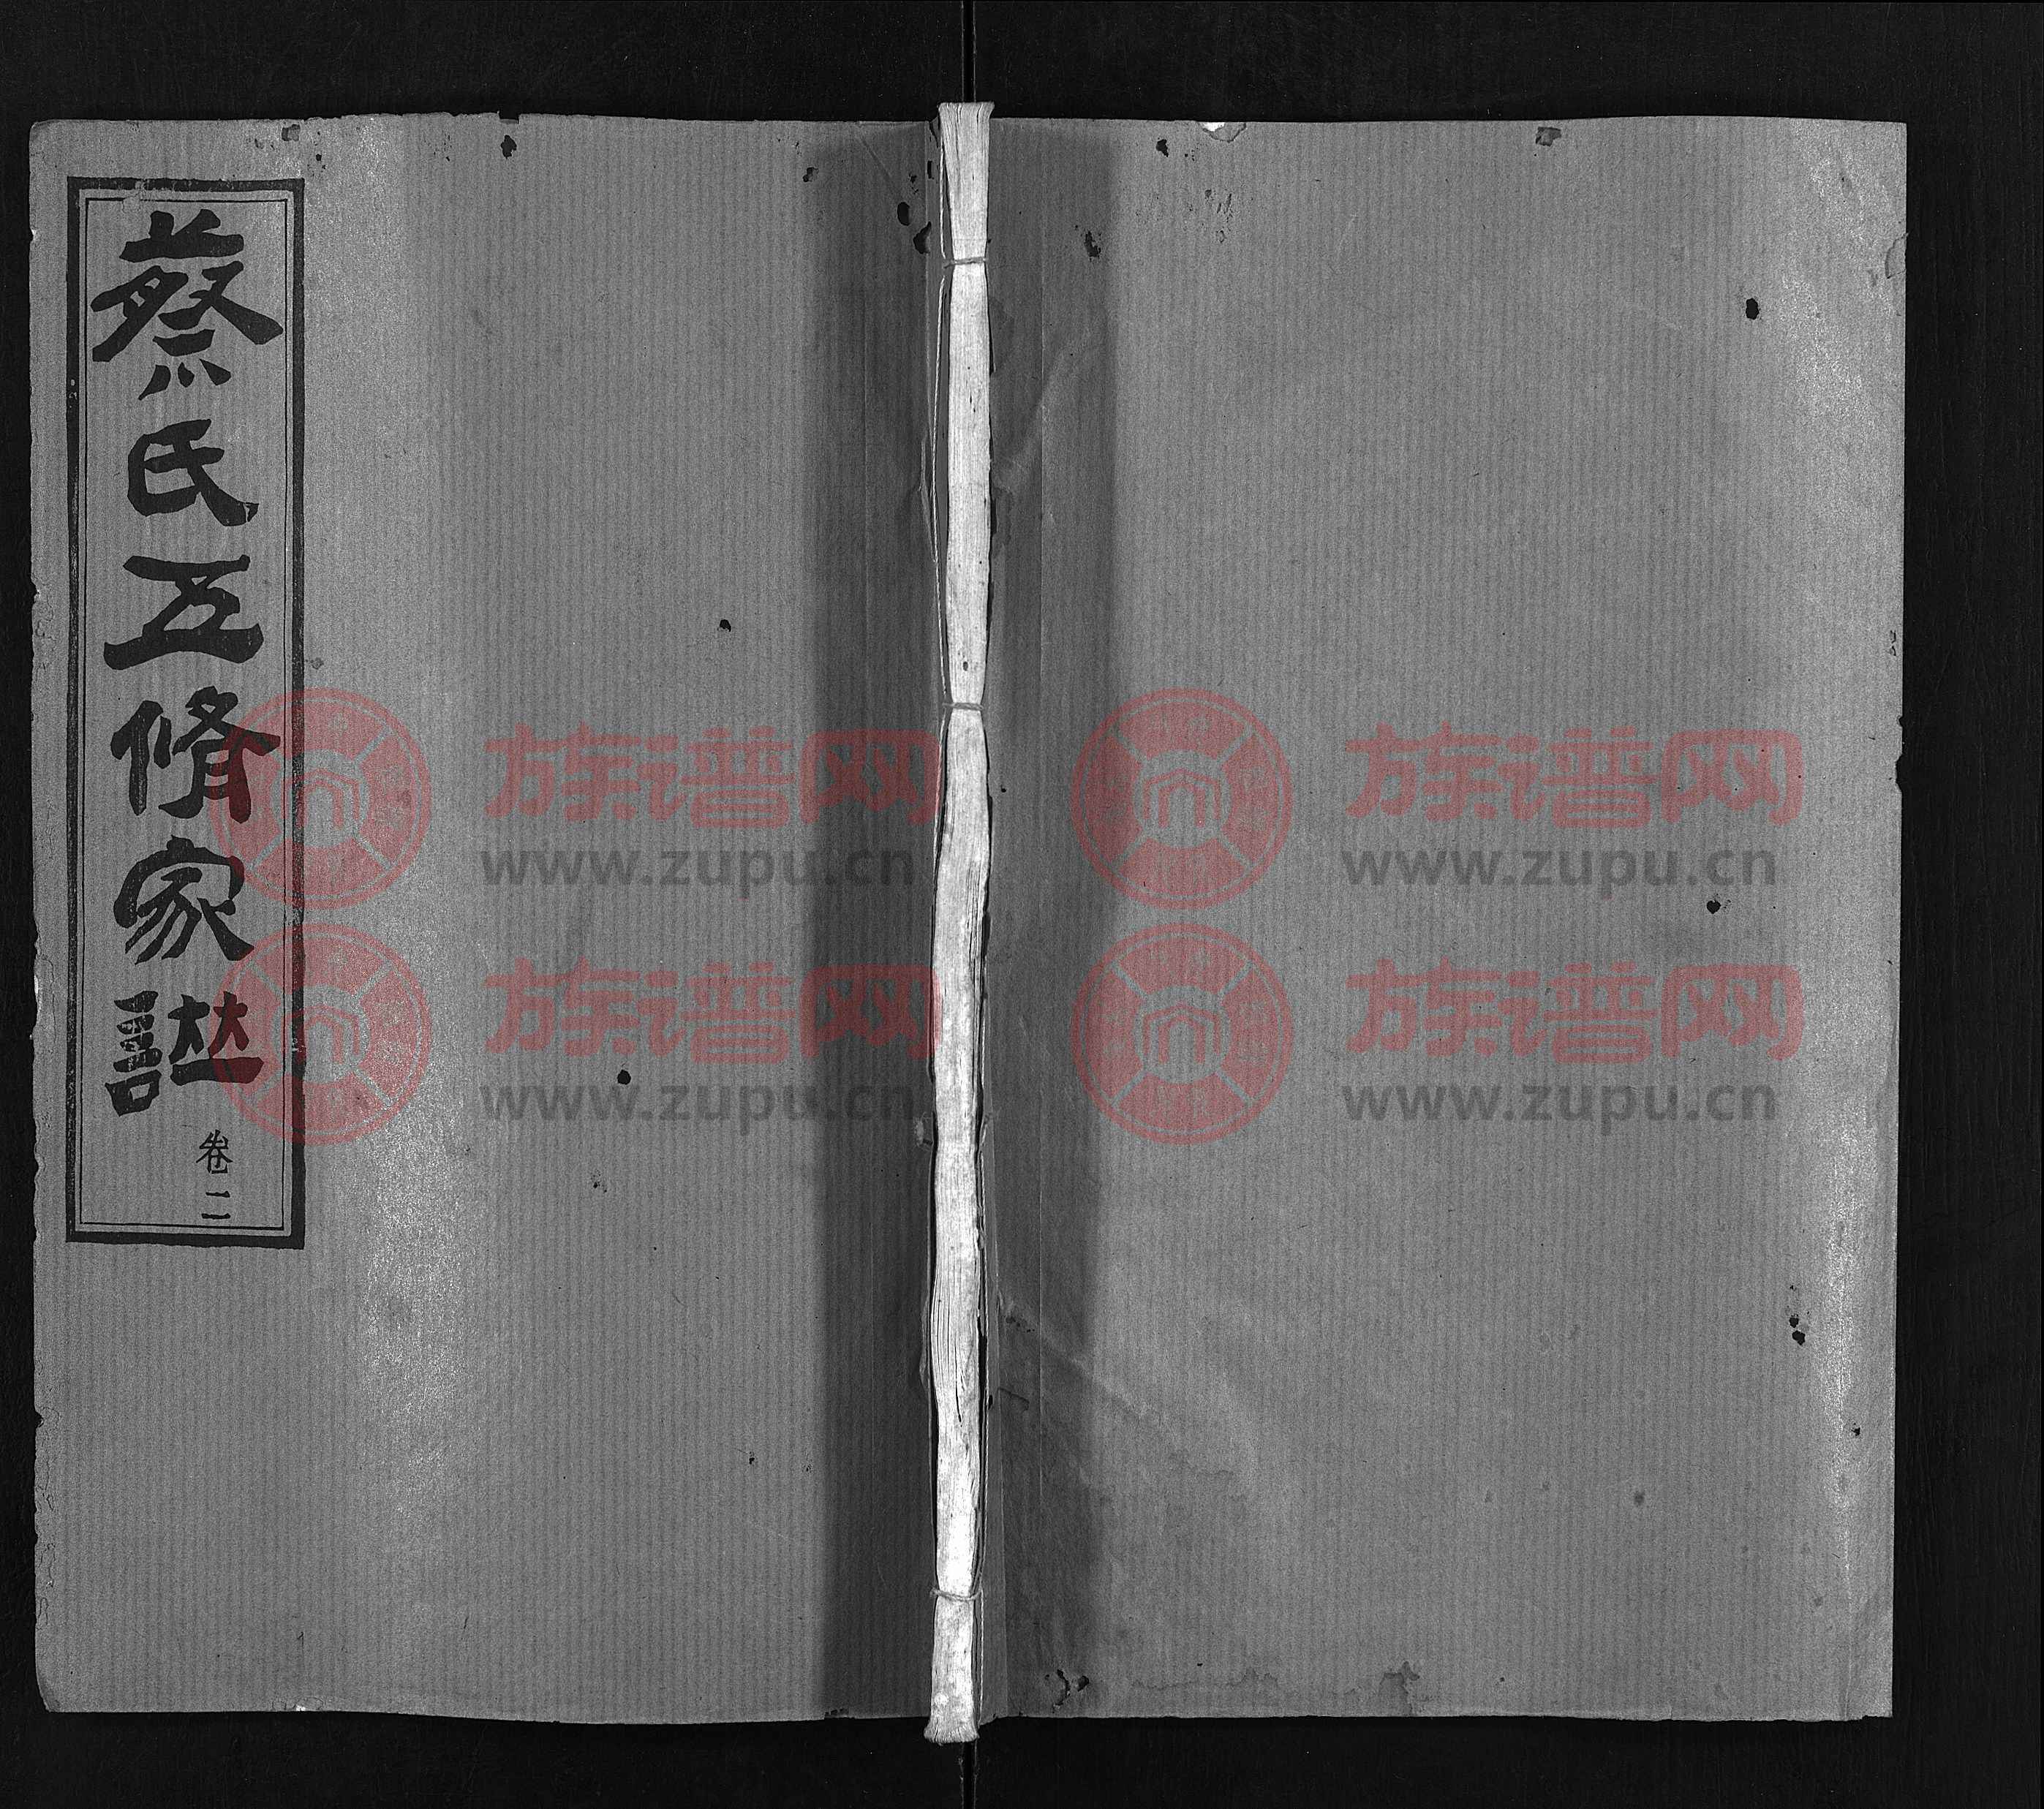 蔡氏五脩家譜
卷二
族谱网 族谱网
www.zupu.cn www.zupu.cn
族谱网 族谱网
www.zupu.cn www.zupu.cn